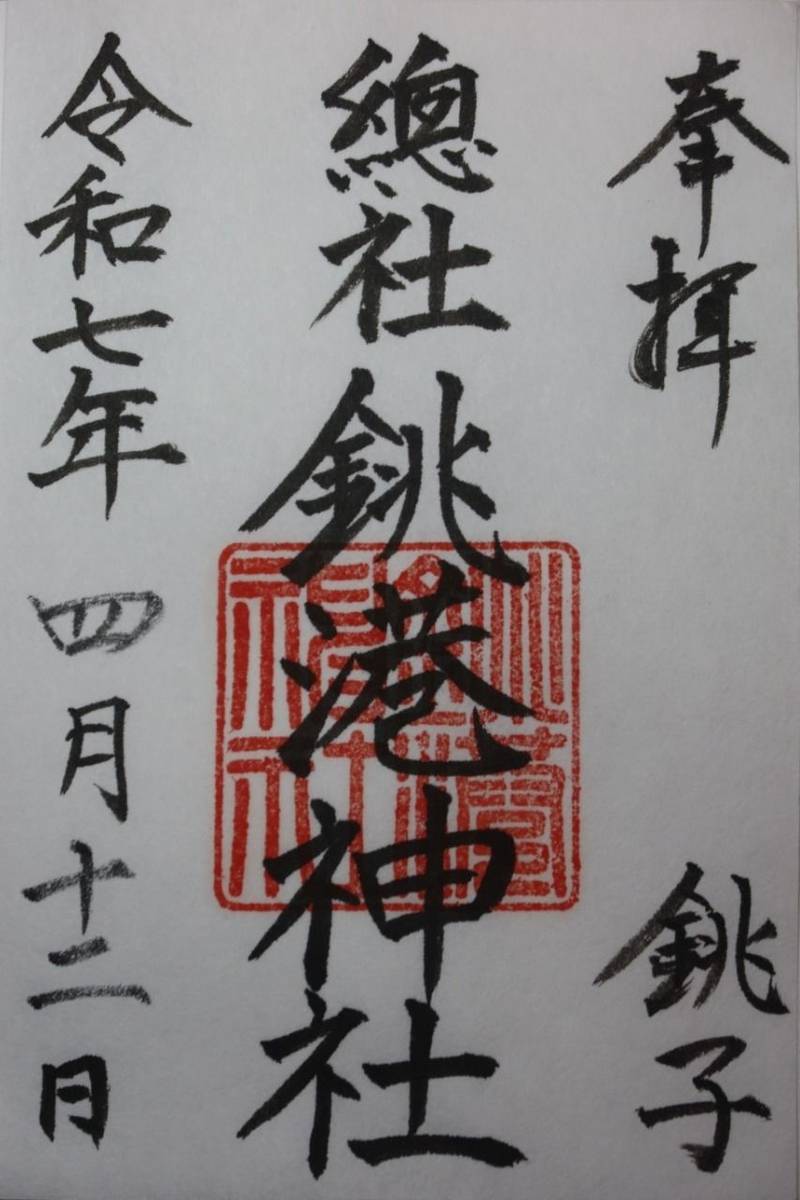 奉拝
銚子
總社
銚港神社
令和七年 四月十二日